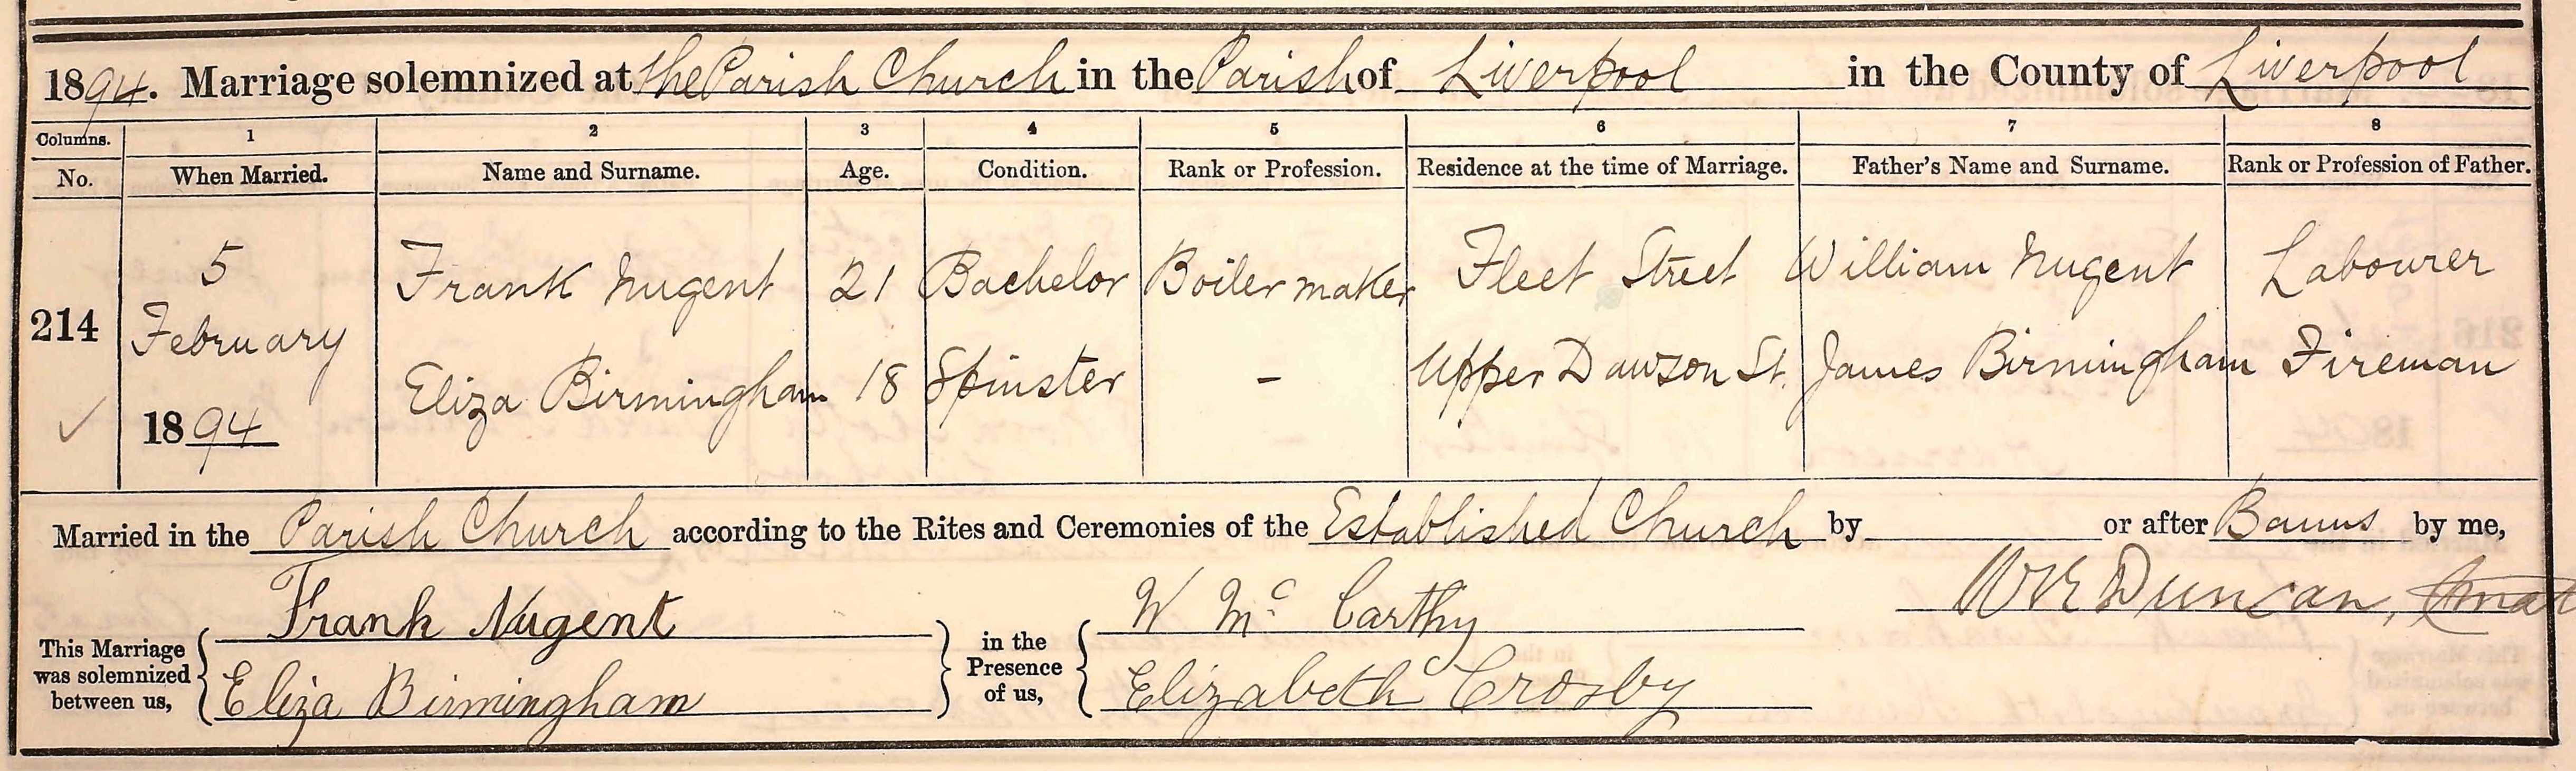 1894. Marriage solemnized at the Parish Church in the Parish of Liverpool in the County of Liverpool
Columns. 1 2 3 4 5 6 7 8
No. When Married. Name and Surname. Age. Condition. Rank or Profession. Residence at the time of Marriage. Father's Name and Surname. Rank or Profession of Father.
214 5 February 1894 Frank Nugent 21 Bachelor Boiler maker Fleet Street William Nugent Labourer
✓ Eliza Birmingham 18 Spinster - Upper Dawson St. James Birmingham Fireman
Married in the Parish Church according to the Rites and Ceremonies of the Established Church by or after Banns by me,
Duncan,
This Marriage was solemnized between us, { Frank Nugent } in the Presence of us, { W McCarthy
Eliza Birmingham Elizabeth Crosby